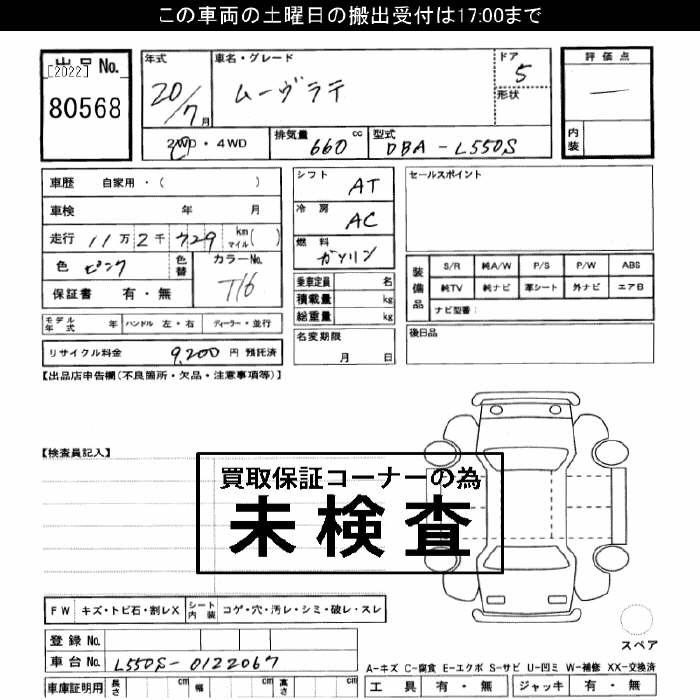 この車両の土曜日の搬出受付は17:00まで
出品No.
[2022]
80568
年式
20/7月
車名・グレード
ムーヴラテ
ドア
5
形状
評価点
―
内装
2WD・4WD
排気量 660 cc
型式 DBA-L550S
車歴 自家用・( )
車検 年 月
走行 11万2千729 km マイル( )
色 ピンク
色替
カラーNo.
T16
保証書 有・無
モデル年式 年
ハンドル 左・右
ディーラー・並行
リサイクル料金 9,200 円 預託済
シフト AT
冷房 AC
燃料 ガソリン
乗車定員 名
積載量 kg
総重量 kg
名変期限
月 日
セールスポイント
装備品
S/R 純A/W P/S P/W ABS
純TV 純ナビ 革シート 外ナビ エアB
ナビ型番:
後日品
【出品店申告欄(不良箇所・欠品・注意事項等)】
【検査員記入】
買取保証コーナーの為
未検査
FW キズ・トビ石・割レX
シート内装 コゲ・穴・汚レ・シミ・破レ・スレ
登録No.
車台No. L550S-0122067
車庫証明用 長さ cm 幅 cm 高さ cm
スペア
A-キズ C-腐食 E-エクボ S-サビ U-凹ミ W-補修 XX-交換済
工具 有・無 ジャッキ 有・無